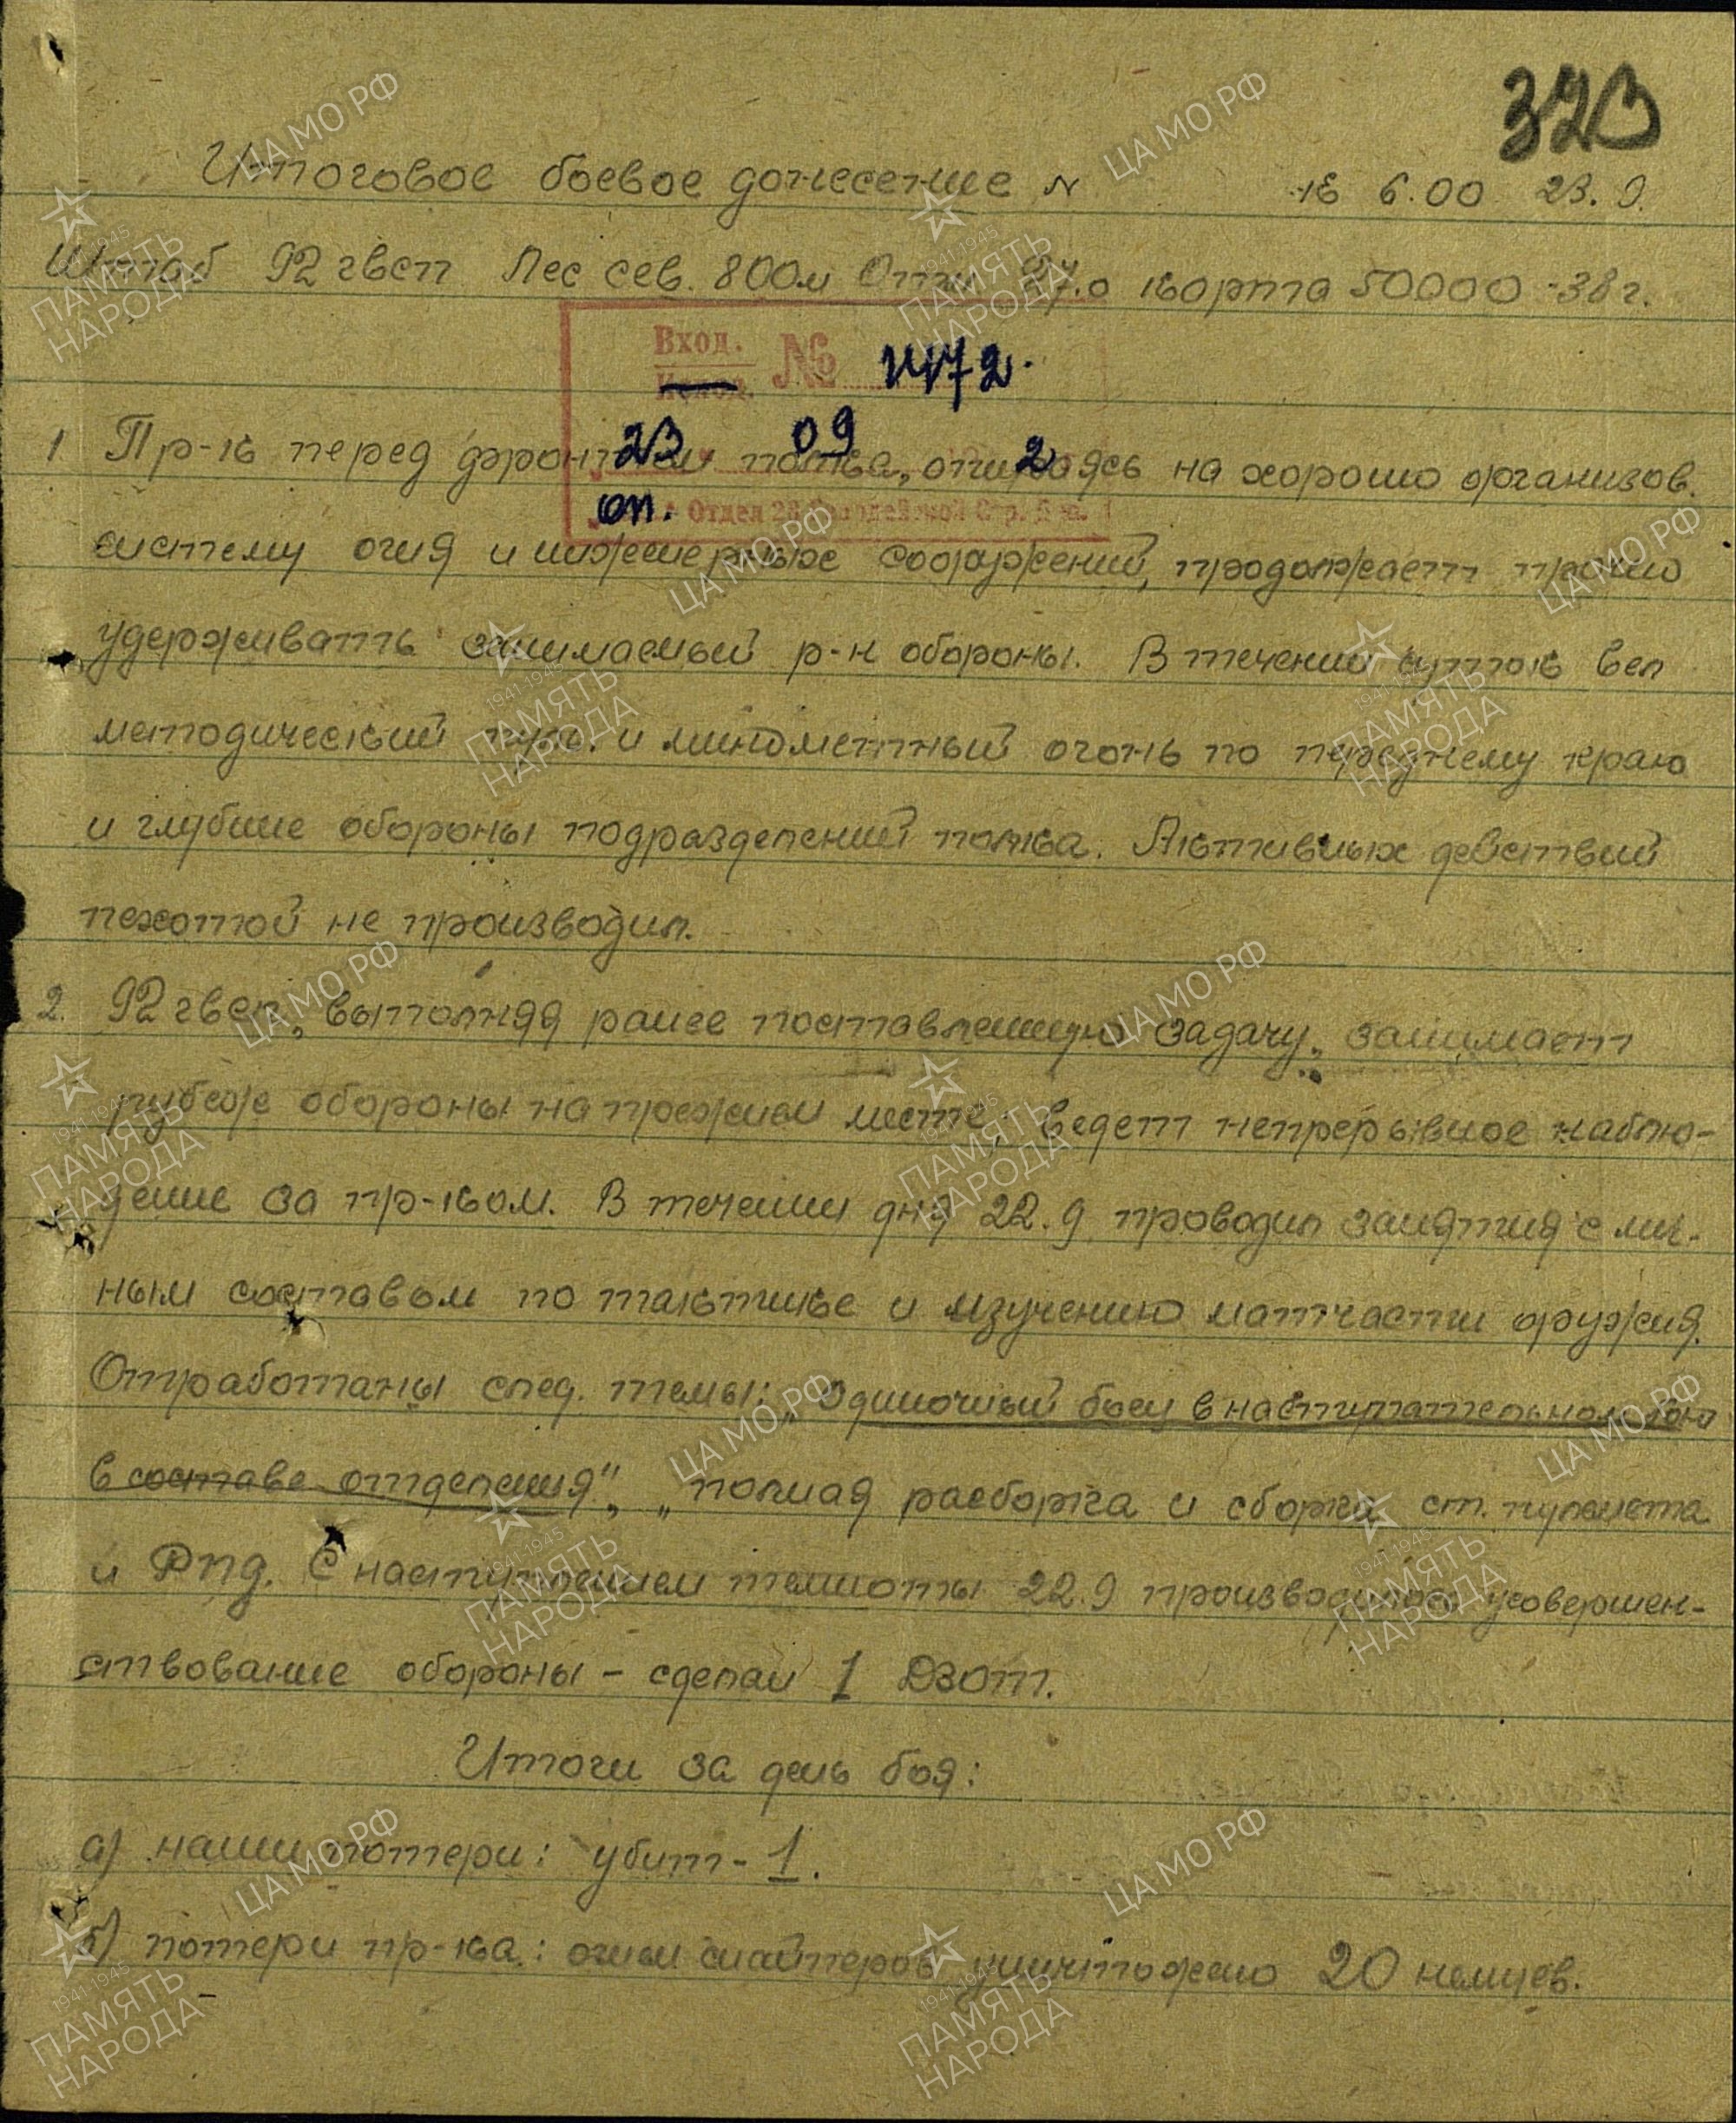 323
Итоговое боевое донесение № к 6.00 23.9.
Штаб 92 гвсп Лес сев. 800м Отм карта 50000-38г.
Вход. № 1472.
23 09 2
оп. Отдел 28 Гвардейской Стр. Див.
1 Пр-к перед фронтом полка, опираясь на хорошо организов.
систему огня и инженерных сооружений, продолжает прочно
удерживать занимаемый р-н обороны. В течении суток вел
методический пул. и минометный огонь по переднему краю
и глубине обороны подразделений полка. Активных действий
пехотой не производил.
2. 92 гвсп, выполняя ранее поставленную задачу, занимает
рубеж обороны на прежнем месте, ведет непрерывное наблю-
дение за пр-ком. В течении дня 22.9 проводил занятия с лич-
ным составом по тактике и изучению матчасти оружия.
Отработаны след. темы: „Одиночный боец в наступательном бою
в составе отделения", „полная разборка и сборка ст. пулемета
и РПД. С наступлением темноты 22.9 производилось усовершен-
ствование обороны - сделан 1 ДЗОТ.
Итоги за день боя:
а) наши потери: убит - 1.
б) потери пр-ка: огнем снайперов уничтожено 20 немцев.
ЦА МО РФ
1941-1945
ПАМЯТЬ
НАРОДА